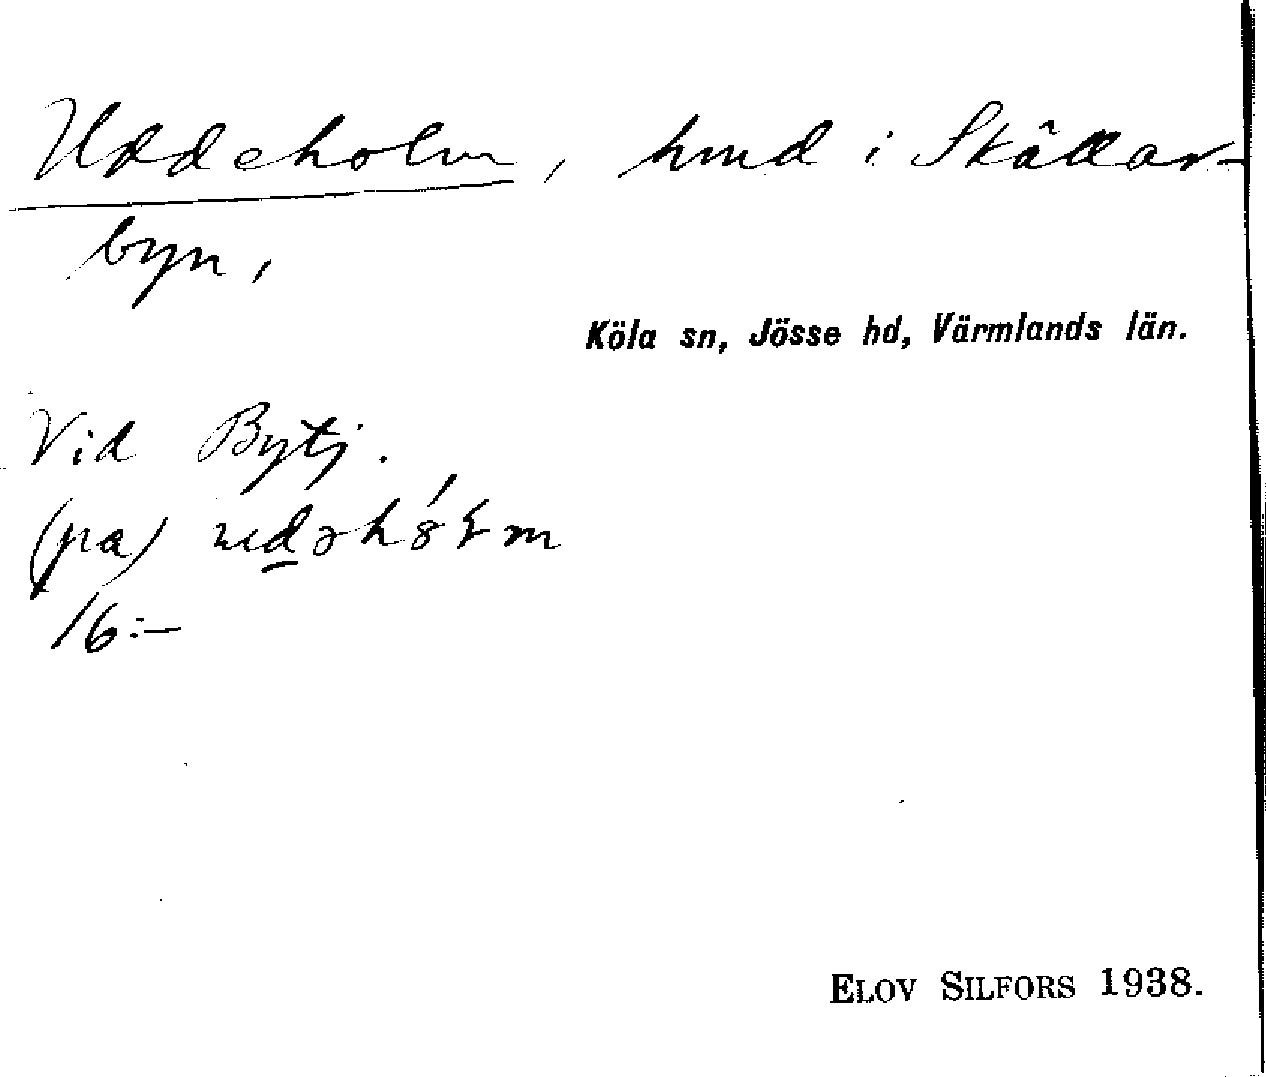 Uddeholm, hmd i Skållar-
byn,
Köla sn, Jösse hd, Värmlands län.
Vid Bytj.
(pa)
16:-
ELOV SILFORS 1938.